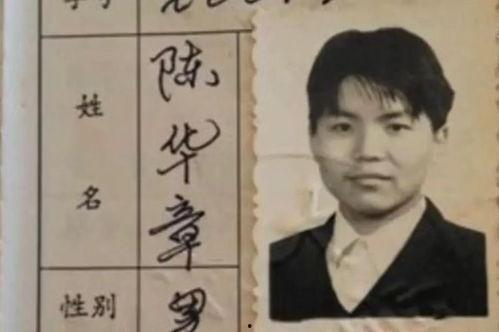 姓名
陈华章
性别
男